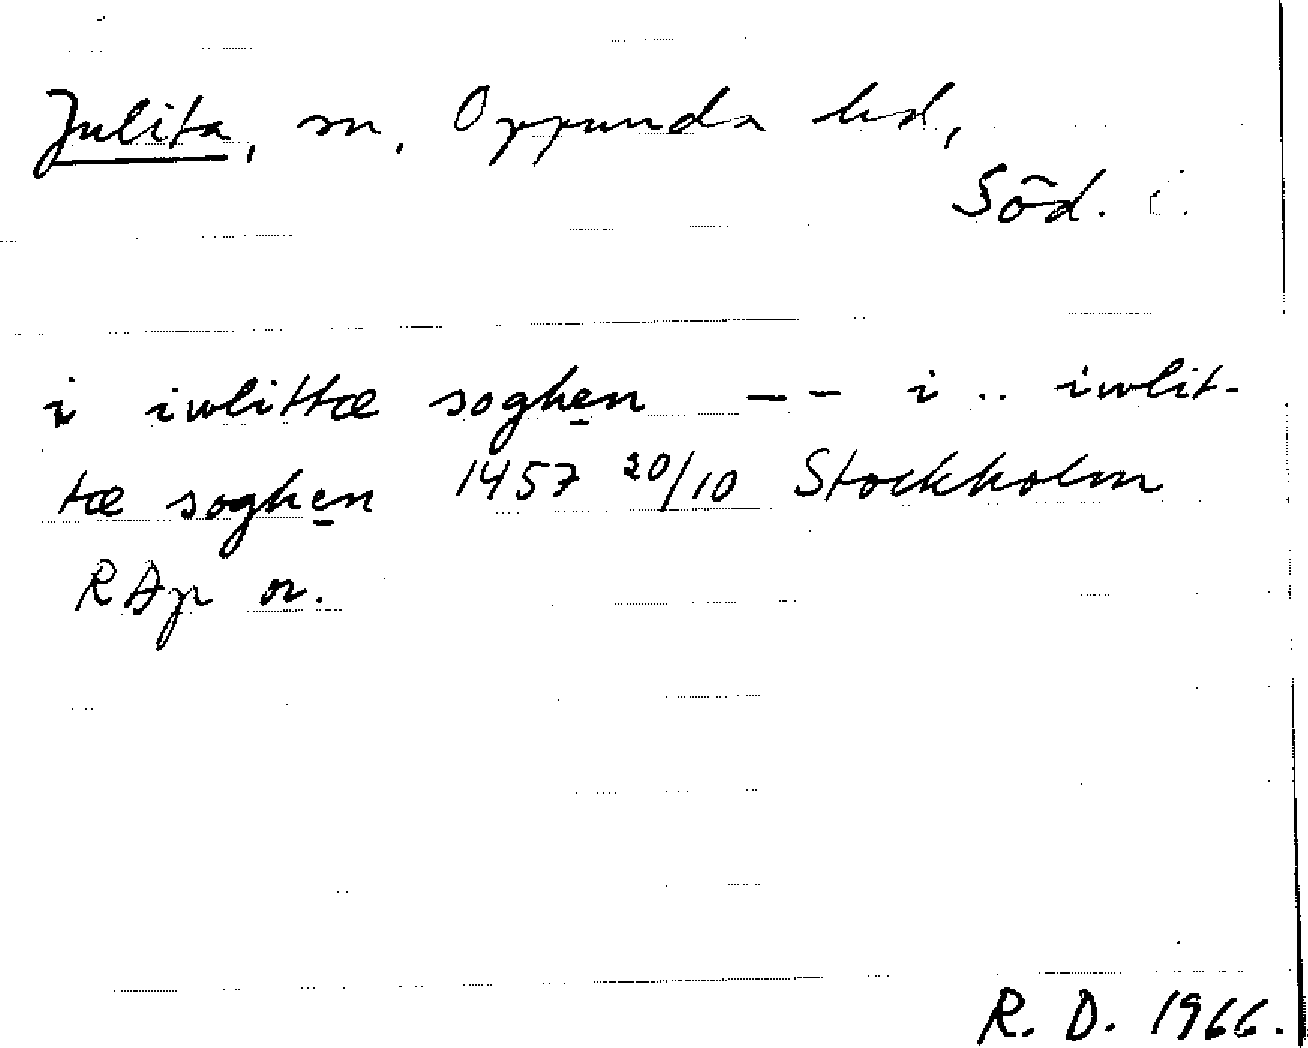 Julita, sn, Oppunda hd,
Söd.
i iwlittæ soghen -- i .. iwlit-
tæ soghen 1457 20/10 Stockholm
RAp or.
R. D. 1966.